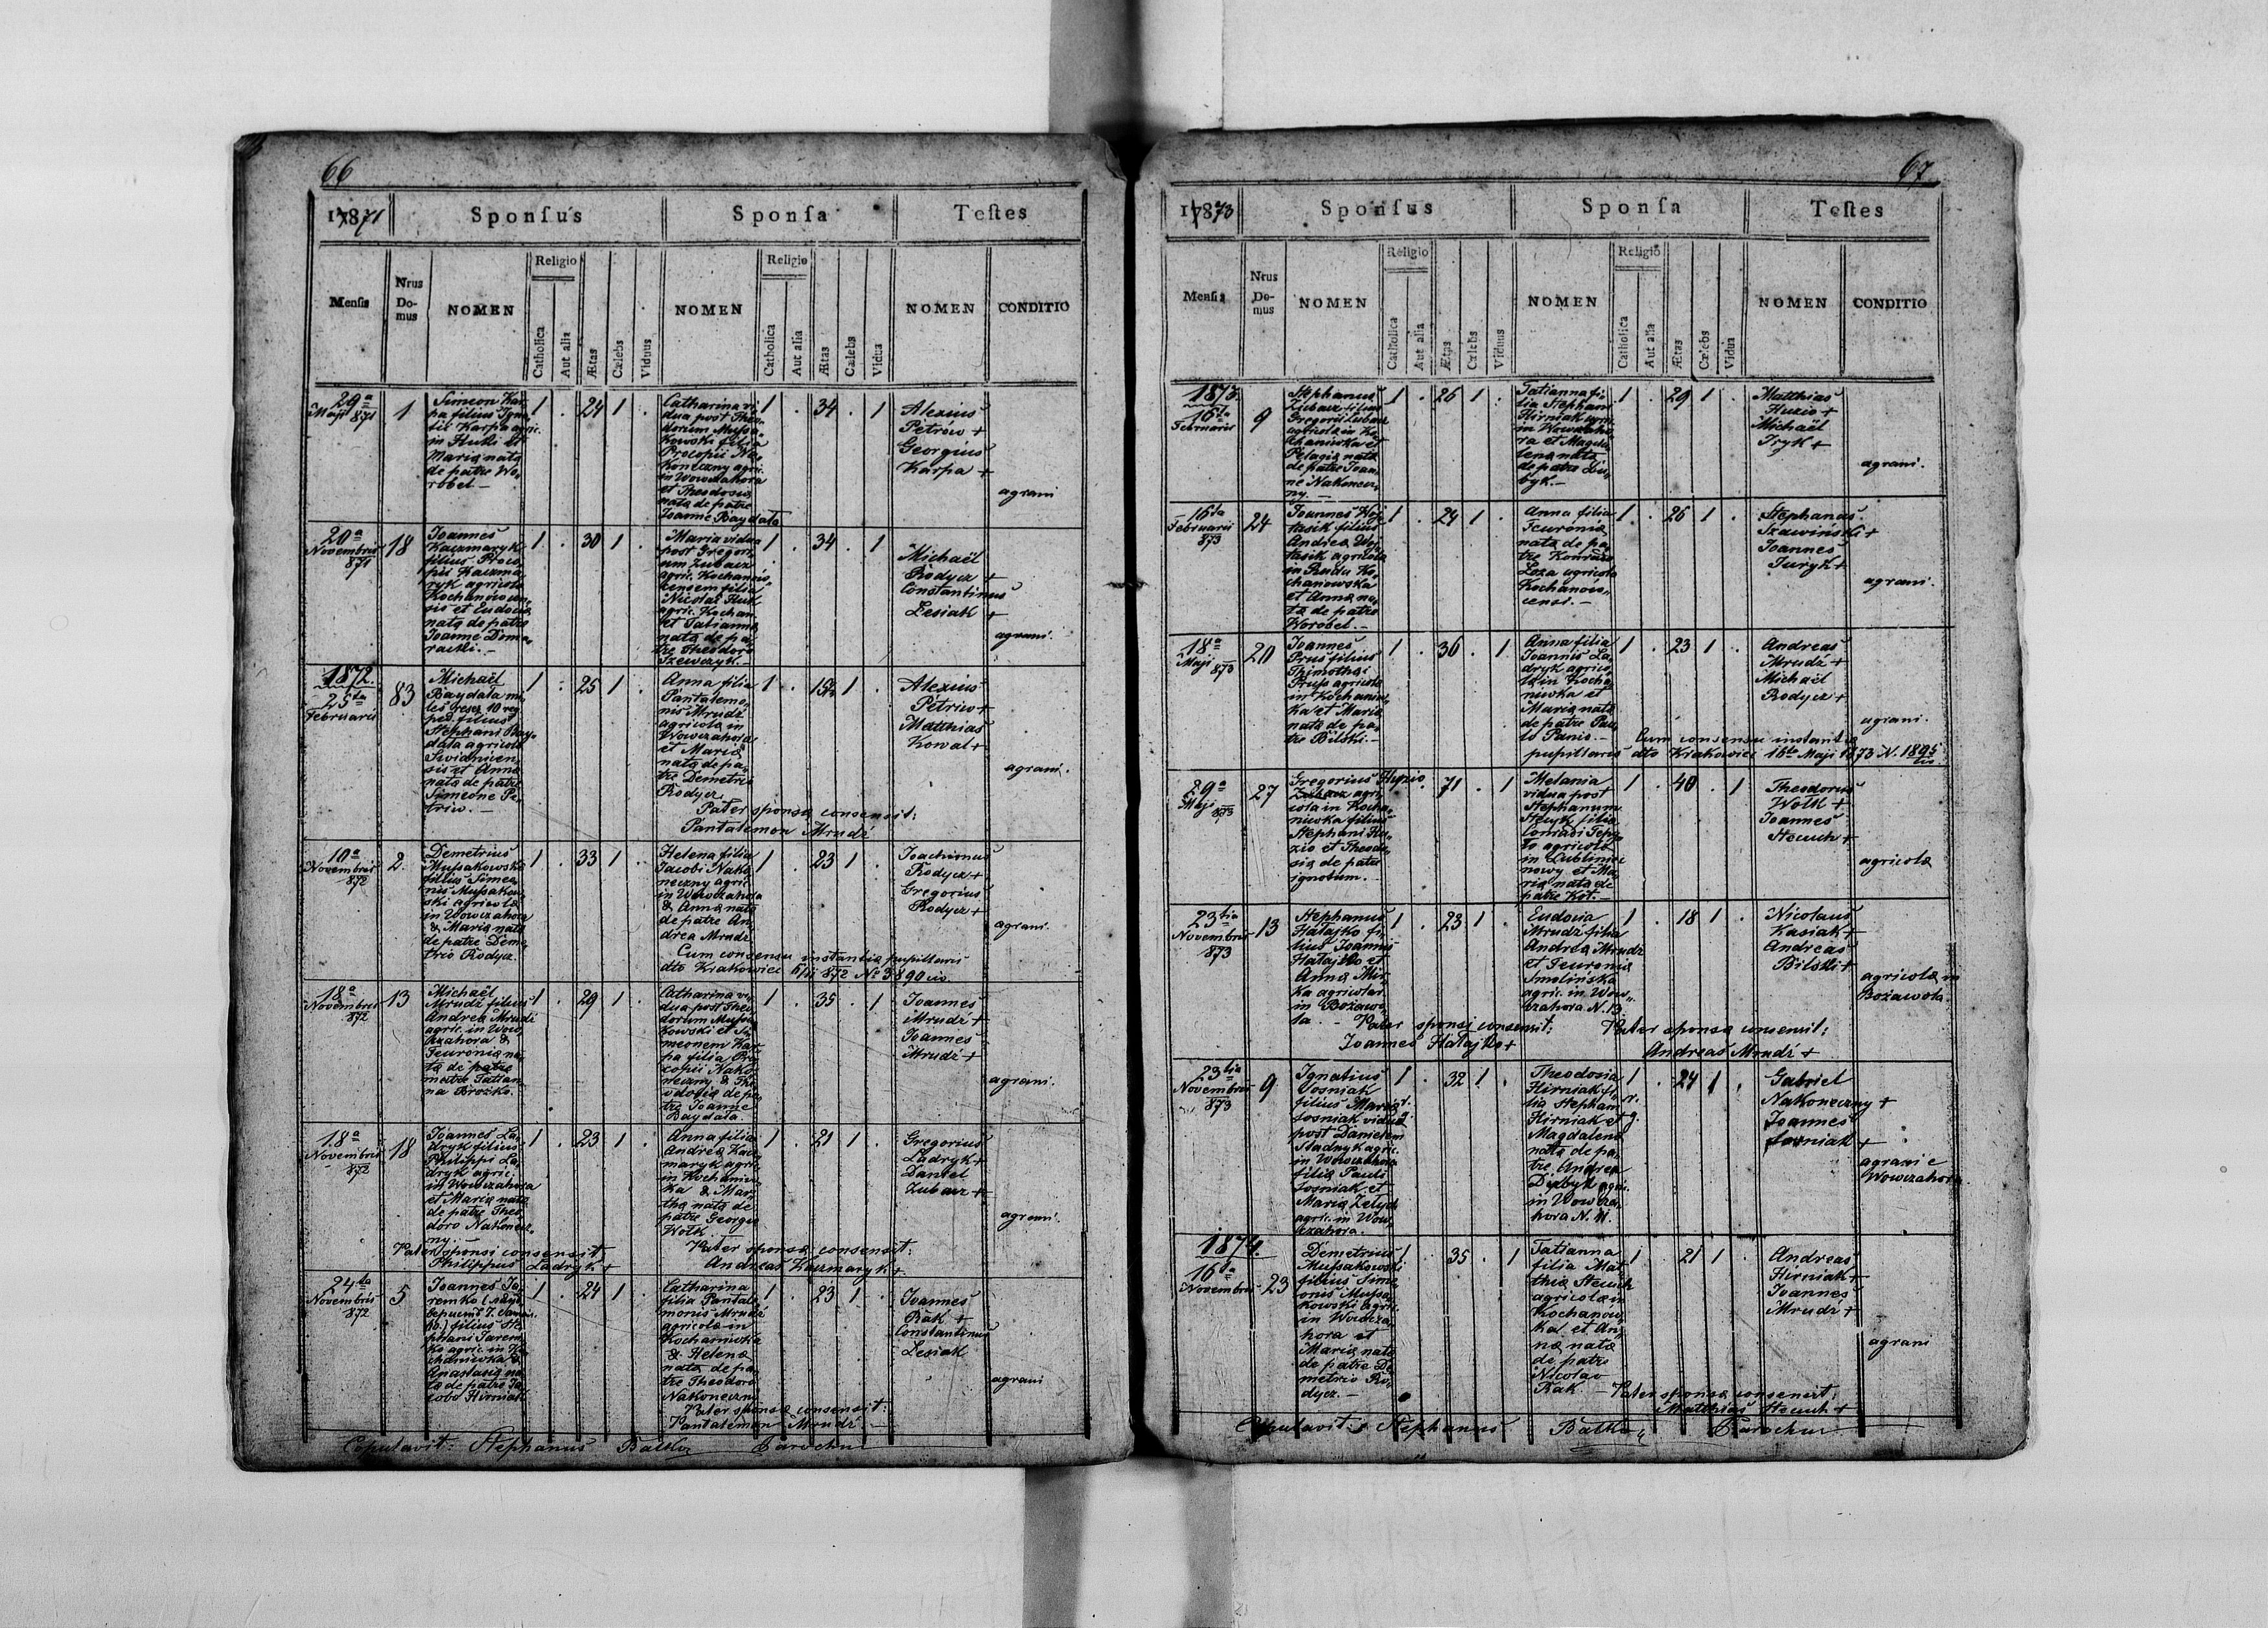 66
17871
Sponſus
Sponſa
Teſtes
Menſis
Nrus
Do-
mus
NOMEN
Religio
Catholica
Aut alia
Ætas
Cælebs
Viduus
NOMEN
Religio
Catholica
Aut alia
Ætas
Cælebs
Vidua
NOMEN
CONDITIO
29a
Maji 871
1
Simeon Kar„
pa filius Igna„
tii Karpa agric.
in Huki et
Maria nata
de patre Wo„
robel —
1 . 24 1 .
Catharina vi„
dua post Theo„
dorum Mussa„
kowski filia
Procopii Na„
koneczny agric.
in Wowczahora
et Theodosia
nata de patre
Joanne Baydala
1 . 34 . 1
Alexius
Petrów +
Georgius
Karpa +
agrani
20a
Novembris
871
18
Joannes
Kaczmaryk
filius Proco„
pii Kaczma„
ryk agricola
Kochanovien„
sis et Eudocia
nata de patre
Joanne Doma„
racki. —
1 . 30 1 .
Maria vidua
post Gregori„
um Zubacz
agric. Kochanov„
censem filia
Nicolai Huk
agric. Kochan.
et Tatianna
nata de pa„
tre Theodoro
Szewczyk. —
1 . 34 . 1
Michaël
Rodycz +
Constantinus
Lesiak +
agrani.
1872.
25ta
Februarii
83
Michaël
Baydala mi„
les reser. 10 reg.
ped. filius
Stephani Bay„
dala agricola
Svidnicen„
sis et Anna
nata de patre
Simeone Pe„
triw. —
1 . 25 1 .
Anna filia
Pantaleme„
nis Mrudź
agricola in
Wowczahora
et Maria
nata de pa„
tre Demetrio
Rodycz
1 . 19½ 1 .
Alexius
Petriw +
Matthias
Kowal +
agrani.
Pater sponsa consensit:
Pantalemon Mrudź
10a
Novembris
872
2.
Demetrius
Mussakowski
filius Simeo„
nis Mussakow„
ski agricola
in Wowczahora
& Maria nata
de patre Deme„
trio Rodycz.
1 . 33 1 .
Helena filia
Jacobi Nako„
neczny agric.
in Wowczahora
& Anna nata
de patre An„
drea Mrudź
1 . 23 1 .
Joachimus
Rodycz +
Gregorius
Rodycz +
agrani.
Cum consensu instantia pupillaris
dto Krakowiec 6/11 872 No 3890 civ.
18a
Novembris
872
13
Michaël
Mrudź filius
Andrea Mrudź
agric. in Wow„
czahora &
Feuronia na„
ta de patre
matre Tatian„
na Brożko.
1 . 29 1 .
Catharina vi„
dua post Theo„
dorum Mussa„
kowski et Si„
meonem Kar„
pa filia Pro„
copii Nako„
neczny & The„
odosia de pa„
tre Joanne
Baydala
1 . 35 . 1
Joannes
Mrudź +
Joannes
Mrudź +
agrani.
18a
Novembris
872
18
Joannes La„
dryk filius
Philippi La„
dryk agric.
in Wowczahora
et Maria nata
de patre Theo„
doro Nakonecz„
ny. —
1 . 23 1 .
Anna filia
Andrea Kacz„
maryk agric.
in Kochaniw„
ka & Mar„
tha nata de
patre Georgio
Wolk.
1 . 21 1 .
Gregorius
Ladryk +
Daniel
Zubacz +
agrani.
Pater sponsi consensit
Philippus Ladryk +
Pater sponsa consensit:
Andreas Kaczmaryk +
24ta
Novembris
872
5
Joannes Ja„
remko
filius Ste„
phani Jarem„
ko agric. in Ko„
chaniwka &
Anastasia na„
ta de patre Ja„
cobo Hirniak
1 . 24 1 .
Catharina
filia Pantale„
monis Mrudź
agricola in
Kochaniwka
& Helena
nata de pa„
tre Theodoro
Nakoneczny
1 . 23 1 .
Joannes
Rak +
Constantinus
Lesiak
agrani
Pater sponsa consensit:
Pantalemon Mrudź —
Copulavit: Stephanus Batko Parochus
67
17873
Sponſus
Sponſa
Teſtes
Menſis
Nrus
Do-
mus
NOMEN
Religio
Catholica
Aut alia
Ætas
Cælebs
Viduus
NOMEN
Religio
Catholica
Aut alia
Ætas
Cælebs
Vidua
NOMEN
CONDITIO
1873.
16ta
Februarii
9
Stephanus
Zubacz filius
Gregorii Zubacz
agricola in Ko„
chaniwka et
Pelagia nata
de patre Joan„
ne Nakonecz„
ny. —
1 . 26 1 .
Tatianna fi„
lia Stephani
Hirniak agric.
in Wowczaho„
ra et Magda„
lena nata
de patre
byk. —
1 . 29 1 .
Matthias
Huzio +
Michaël
Iryk +
agrani.
16ta
Februarii
873
24
Joannes Woj„
tasik filius
Andrea Woj„
tasik agricola
in Ruda Ko„
chanowska
et Anna na„
ta de patre
Worobel. —
1 . 24 1 .
Anna filia
Feuronia
nata de pa„
tre Konrado
Loza agricola
Kochanow„
censi. —
1 . 26 1 .
Stephanus
Szawinski +
Joannes
Juryk +
agrani.
18a
Maji 873
20
Joannes
Prus filius
Timothei
Prus agricola
in Kochaniw„
ka et Maria
nata de pa„
tre Bilski. —
1 . 36 . 1
Anna filia
Joannis La„
dryk agrico„
la in Kocha„
niwka et
Maria nata
de patre Pau„
lo Panio. —
1 . 23 1 .
Andreas
Mrudź +
Michaël
Rodycz +
agrani.
Cum consensu instantia
pupillaris dto Krakowiec 16ta Maji 1873 N. 1895
civ
29a
Maji
873
27
Gregorius Huzio
Zubacz agri„
cola in Kocha„
niwka filius
Stephani Hu„
zio et Theodo„
sia de patre
ignotum. —
. 71 . 1
Melania
vidua post
Stephanum
filia
Conradi
agricola
in Lublinec
nowy et Ma„
ria nata de
patre Kot. —
1 . 40 . 1
Theodorus
Wolk +
Joannes
Stecuch +
agricola
23tia
Novembris
873
13
Stephanus
Hałajko fi„
lius Joannis
Hałajko et
Anna Mir„
ka agricolar.
in Bożawo„
la. —
1 . 23 1 .
Eudoxia
Mrudź filia
Andrea Mrudź
et Feuronia
Smolińska
agric. in Wow„
czahora N. 13
1 . 18 1 .
Nicolaus
Kasiak +
Andreas
Bilski +
agricola in
Bożawola.
Pater sponsi consensit:
Joannes Hałajko +
Pater sponsa consensit:
Andreas Mrudź +
23tia
Novembris
873
9
Ignatius
Sosniak
filius Maria
Sosniak vidua
post Danielem
Stadnyk agric.
in Wowczahora
filia Pauli
Sosniak et
Maria Zelych
agric. in Wow„
czahora.
1 . 32 1 .
Theodosia
Hirniak fi„
lia Stephani
Hirniak et
Magdalena
nata de pa„
tre Andrea
agric.
in Wowcza„
hora N. 11.
1 . 24 1 .
Gabriel
Nakoneczny +
Joannes
Sosniak +
agrani e
Wowczahora
1874.
16ta
Novembris
23
Demetrius
Mussakowski
filius Sime„
onis Mussa„
kowski agric.
in Wowcza„
hora et
Maria nata
de patre De„
metrio Ro„
dycz. —
1 . 35 . 1
Tatianna
filia Mat„
thia Stecuch
agricola in
Kochanów„
ka et An„
na nata
de patre
Nicolao
Rak —
1 . 21 1 .
Andreas
Hirniak +
Joannes
Mrudź +
agrani
Pater sponsa consensit:
Matthias Stecuch +
Copulavit: Stephanus Batko Parochus